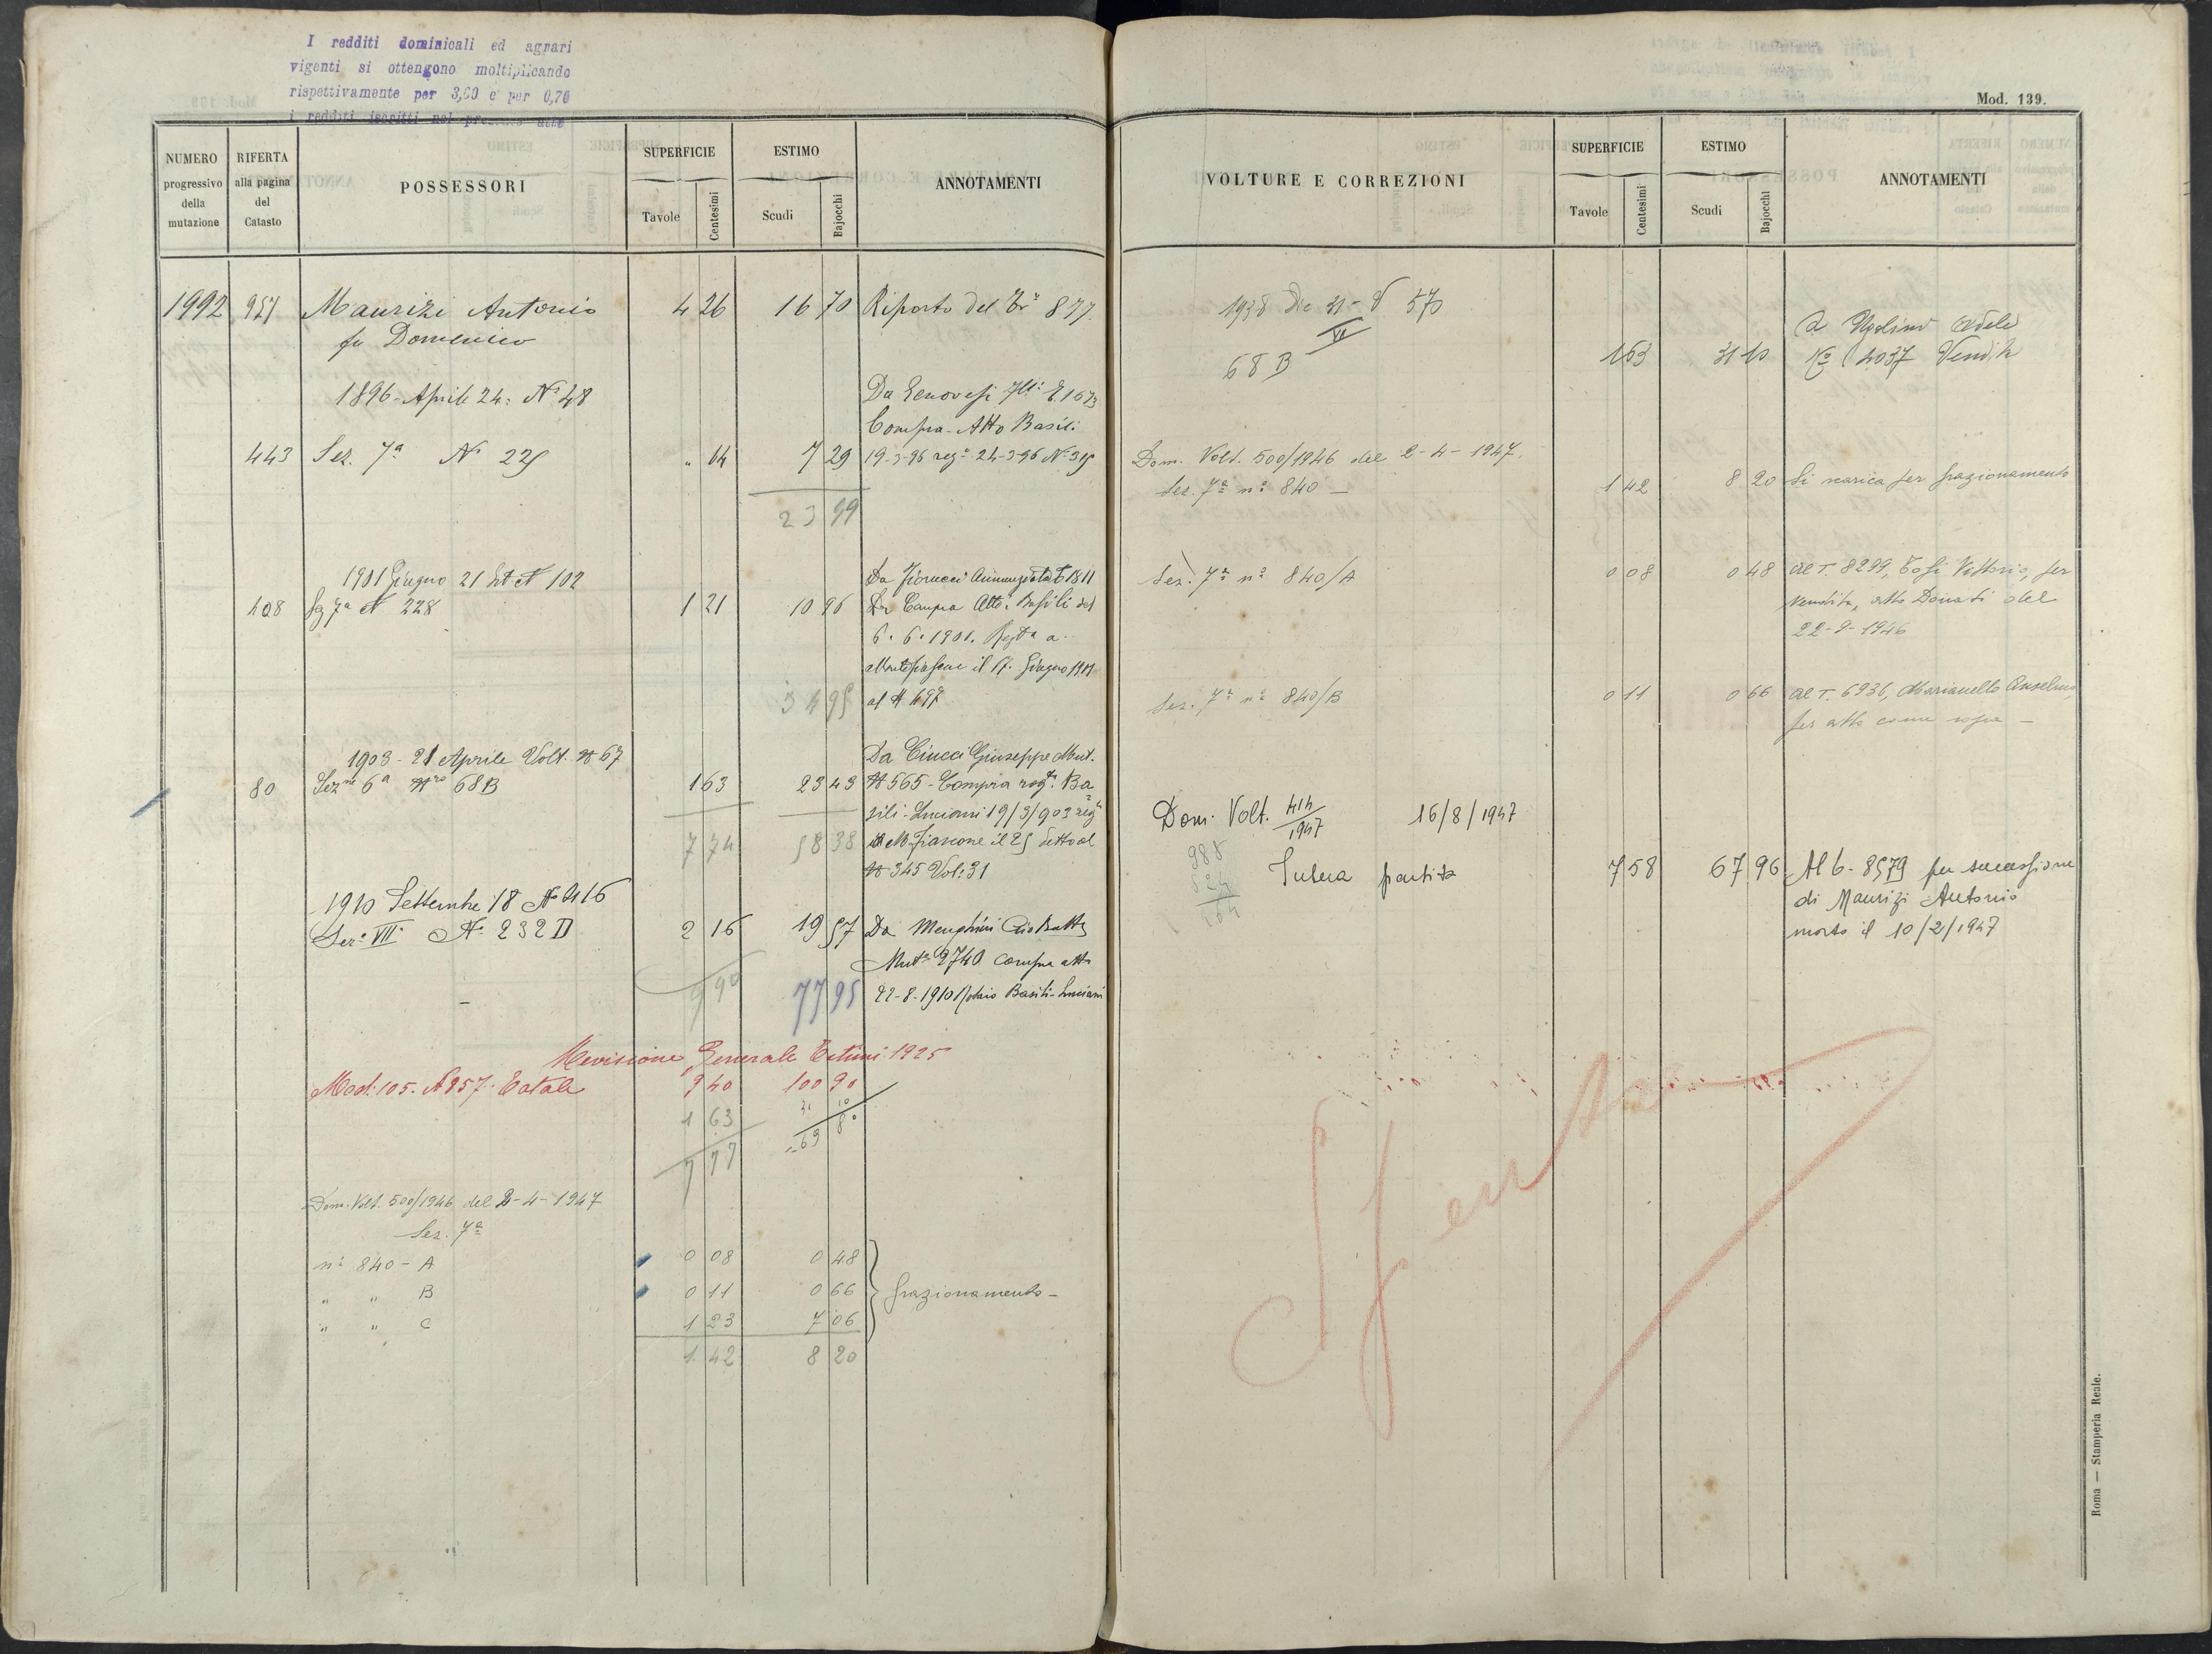 I redditi dominicali ed agrari
vigenti si ottengono moltiplicando
rispettivamente per 3,60 e per 0,70
i redditi iscritti nel
NUMERO progressivo della mutazione
RIFERTA alla pagina del Catasto
POSSESSORI
SUPERFICIE
Tavole Centesimi
ESTIMO
Scudi Bajocchi
ANNOTAMENTI
1992 957 Maurizi Antonio 4 26 16 70 Riporto del 877
fu Domenico
1896 - Aprile 24: N° 48
Da Genovesi
Compra - Atto Basili
443 Sez. 7ª N° 225 " 64 7 29 19-3-96 reg° 24-3-96 N°
23 99
1901 Giugno 21 N 102 Da Fiorucci Annunziata
408 Sez 7ª N 228 1 21 10 96 Compra Atto: Basili del
6. 6. 1901. Regta a
Montefiascone il 17. Giugno 1901
34 95 al N 497
1903 - 21 Aprile Volt. N 67 Da Ciucci Giuseppe Mut.
80 Sezne 6ª Nro 68B 1 63 23 43 N 565 - Compra rog. Ba
sili - Luciani 19/3/903 reg
7 74 58 38 M. Fiascone il 25 detto al
N 345 Vol: 31
1910 Settembre 18 N° 416
Sez. VII N. 232 D 2 16 19 57 Da Menghini Gio Batta
Muta 2740 compra atto
9 90 77 95 22-8-1910 Notaio Basili-Luciani
Revisione Generale Estimi 1925
Mod: 105. N 957. Totale 9 40 100 90
1 63 31 10
7 77 69 80
Dom. Volt. 500/1946 del 2-4-1947
Sez. 7ª
n° 840 - A 0 08 0 48
" " B 0 11 0 66 frazionamento -
" " C 1 23 7 06
1 42 8 20
Mod. 139.
VOLTURE E CORREZIONI
SUPERFICIE
Tavole Centesimi
ESTIMO
Scudi Bajocchi
ANNOTAMENTI
1938 Dic 31 - V 570
a Ugolini Adele
68 B 1 63 31 10 N° 4037 Vendita
Dom. Volt. 500/1946 del 2-4-1947.
Sez. 7ª n° 840 - 1 42 8 20 Si scarica per frazionamento
Sez. 7ª n° 840/A 0 08 0 48 al T. 8299, Tosi Vittorio, per
vendita, atto Donati del
22-9-1946
Sez. 7ª n° 840/B 0 11 0 66 al T. 6936, Marianello Anselmo,
per atto come sopra -
Dom. Volt. 414/1947 16/8/1947
Intera partita 7 58 67 96 Al 6 - 8579 per successione
di Maurizi Antonio
morto il 10/2/1947
Spenta
Roma — Stamperia Reale.